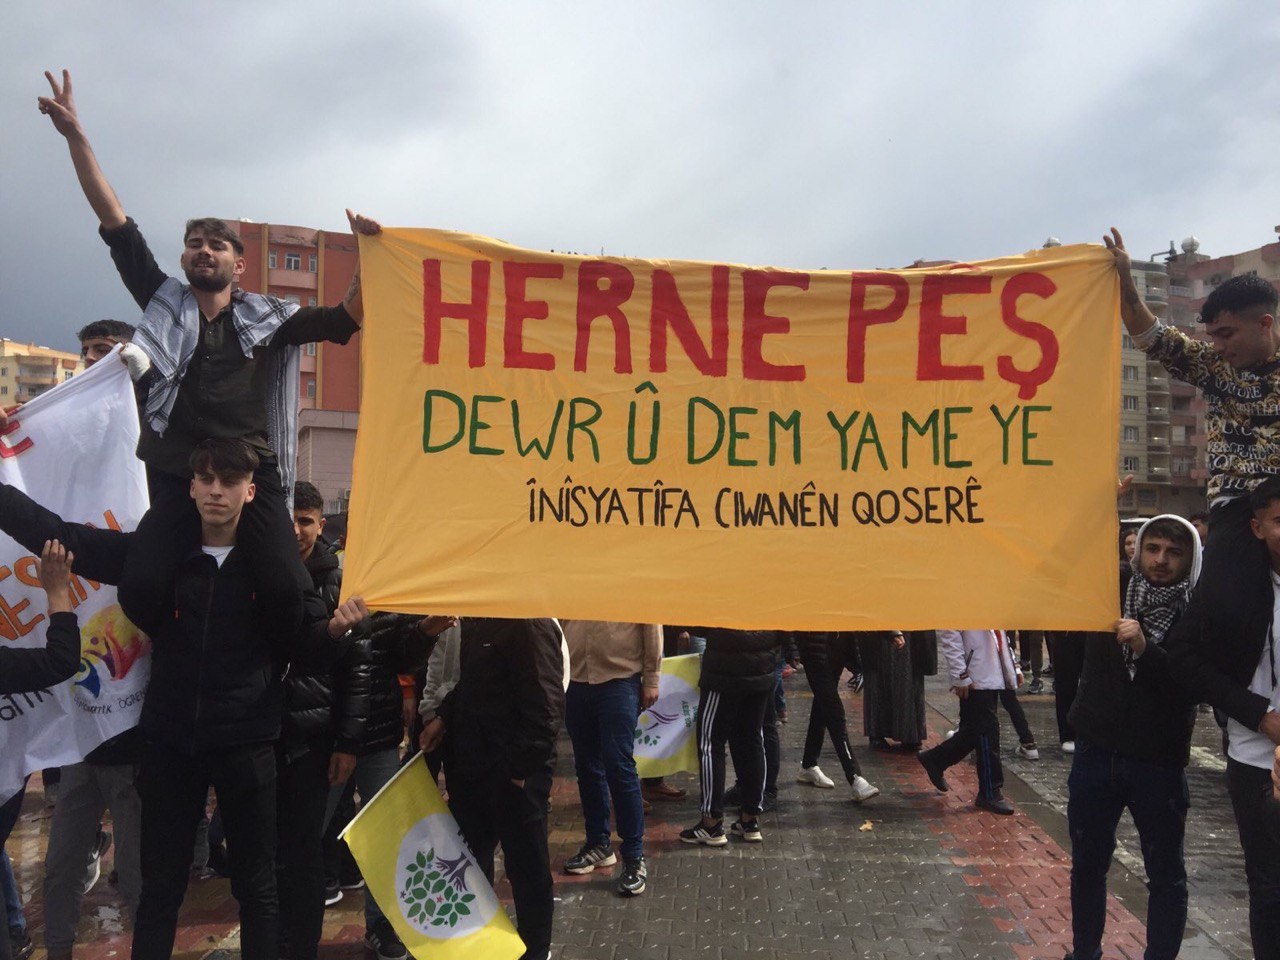 HERNE PÊŞ
DEWR Û DEM YA ME YE
ÎNÎSYATÎFA CIWANÊN QOSERÊ